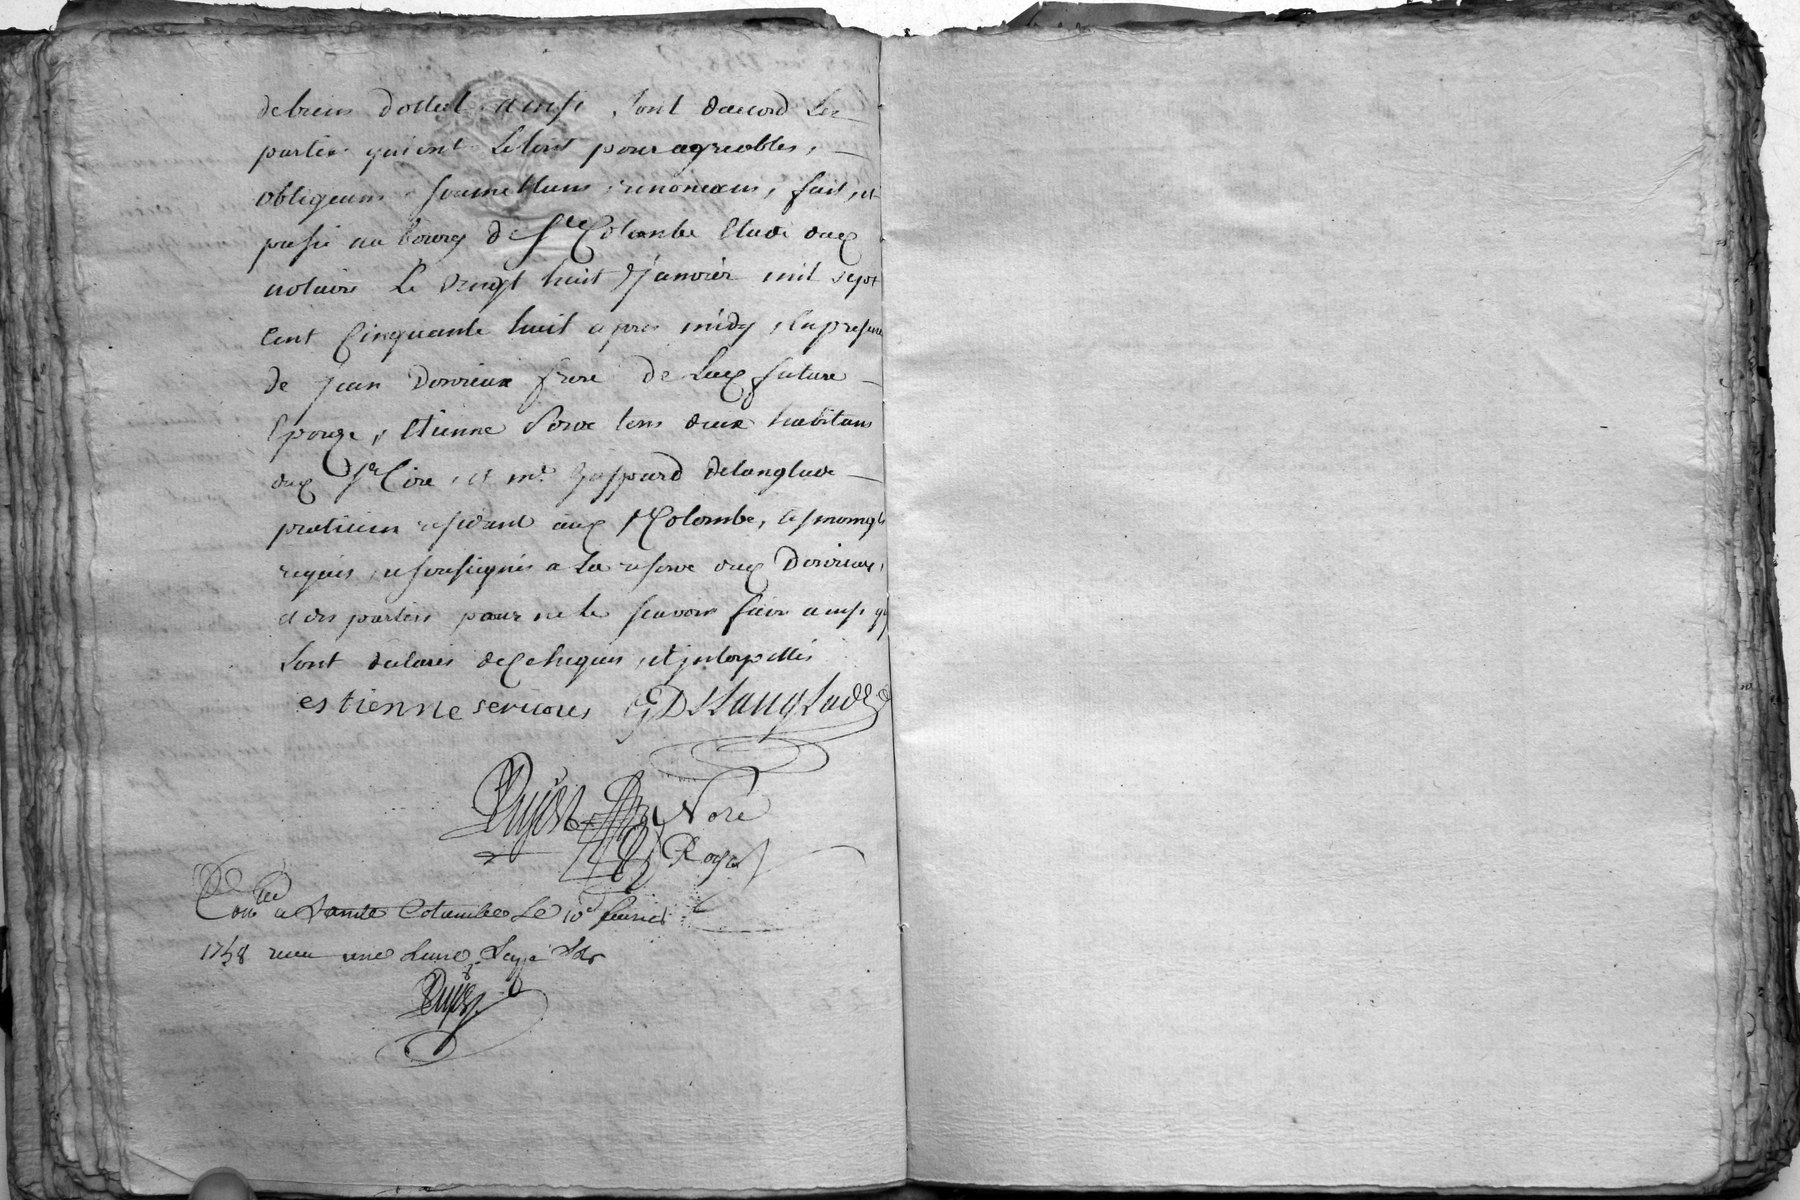 de biens dottal ainsi sont daccord les
parties qui ont le tout pour agreables,
obligeans soumettans renoncans, fait, et
passé au bourg de Ste Colombe Etude dud
notaire le vingt huit Janvier mil sept
cent Cinquante huit apres midy, En presence
de Jean Donrieux frere de Lad future
Epouze, Etienne tous deux habitans
dud St Cire, et mr. Gaspard delanglade
praticien residant aud St Colombe, tesmoings
requis et sousignés a La reserve dud Donrieux,
et des parties pour ne le scavoir faire ainsi qu
sont déclarés de Ce Enquis, et jnterpellés
estienne GDelanglade
Nore
Royal
Conlle a Sainte Colombe Le 10e fevrier
1758 receu une Livre Seize sols